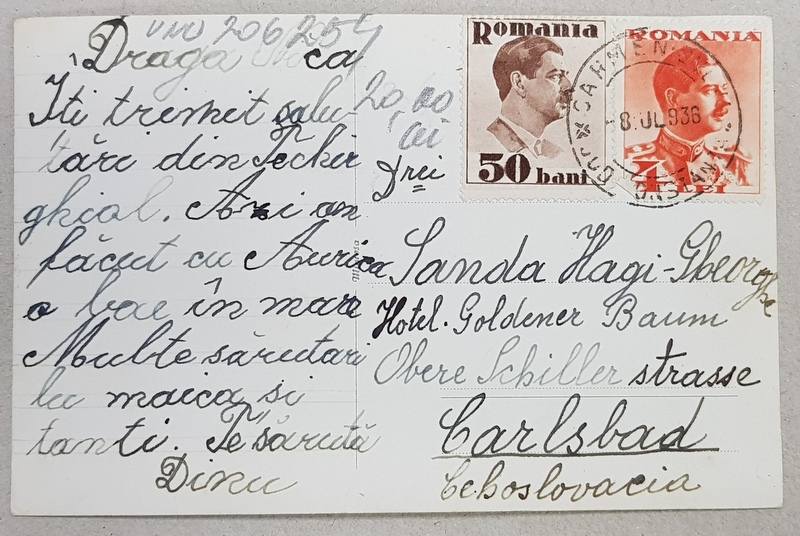 vno 206254
Draga ca
20,00
lei
Iti trimit salu-
tări din Techir
ghiol. Azi am
făcut cu Aurica
o bae în mare
Multe sărutari
lu maica si
tanti. Te sărută
Dinu
Romania
50 bani
ROMANIA
4 LEI
CARMEN
8 IUL 936
CONSTANTA
Drei
Sanda Hagi-Gheorghe
Hotel. Goldener Baum
Obere Schiller strasse
Carlsbad
Cehoslovacia